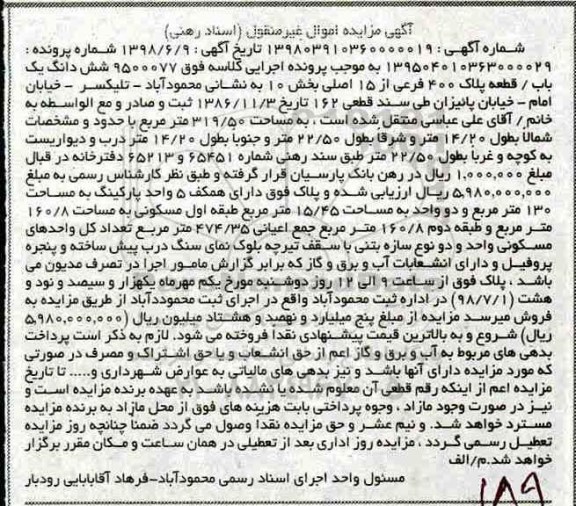 آگهی مزایده اموال غیرمنقول (اسناد رهنی)
شـماره آگهـی : ۱۳۹۸۰۳۹۱۰۳۶۰۰۰۰۰۱۹ تاریخ آگهی : ۱۳۹۸/۶/۹ شـماره پرونده :
۱۳۹۵۰۴۰۱۰۳۶۳۰۰۰۰۲۹ به موجب پرونده اجرایی کلاسه فوق ۹۵۰۰۰۷۷ شش دانگ یک
باب / قطعه پلاک ۴۰۰ فرعی از ۱۵ اصلی بخش ۱۰ به نشـانی محمودآباد - تلیکسر - خیابان
امام - خیابان پانیزان طی سـند قطعی ۱۶۲ تاریخ ۱۳۸۶/۱۱/۳ ثبت و صادر و مع الواسـطه به
خانم / آقای علی عباسی منتقل شده است ، به مساحت ۳۱۹/۵۰ متر مربع با حدود و مشخصات
شمالا بطول ۱۴/۲۰ متر و شرقا بطول ۲۲/۵۰ متر و جنوبا بطول ۱۴/۲۰ متر درب و دیواریست
به کوچه و غربا بطول ۲۲/۵۰ متر طبق سند رهنی شماره ۶۵۴۵۱ و ۶۵۲۱۳ دفترخانه در قبال
مبلغ ۱,۰۰۰,۰۰۰ ریال در رهن بانک پارسـیان قرار گرفته و طبق نظر کارشناس رسمی به مبلغ
۵,۹۸۰,۰۰۰,۰۰۰ ریـال ارزیابی شـده و پلاک فوق دارای همکف ۵ واحد پارکینگ به مسـاحت
۱۳۰ متر مربع و دو واحد به مسـاحت ۱۵/۴۵ متر مربع طبقه اول مسکونی به مساحت ۱۶۰/۸
متـر مربع و طبقه دوم ۱۶۰/۸ متـر مربع جمع اعیانی ۴۷۴/۳۵ متر مربـع تعداد کل واحدهای
مسکونی واحد و دو نوع سازه بتنی با سـقف تیرچه بلوک نمای سنگ درب پیش ساخته و پنجره
پروفیـل و دارای انشـعابات آب و برق و گاز که برابر گزارش مامور اجرا در تصرف مدیون می
باشد ، پلاک فوق از سـاعت ۹ الی ۱۲ روز دوشـنبه مورخ یکم مهرماه یکهزار و سیصد و نود و
هشت (۹۸/۷/۱) در اداره ثبت محمودآباد واقع در اجرای ثبت محموددآباد از طریق مزایده به
فروش میرسـد مزایده از مبلغ پنج میلیارد و نهصد و هشـتاد میلیون ریال (۵,۹۸۰,۰۰۰,۰۰۰
ریال) شروع و به بالاترین قیمت پیشنهادی نقدا فروخته می شود. لازم به ذکر است پرداخت
بدهی های مربوط به آب و برق و گاز اعم از حق انشـعاب و یا حق اشـتراک و مصرف در صورتی
که مورد مزایده دارای آنها باشد و نیز بدهی های مالیاتی به عوارض شهرداری و..... تا تاریخ
مزایده اعم از اینکه رقم قطعی آن معلوم شده یا نشده باشد به عهده برنده مزایده است و
نیـز در صورت وجود مازاد ، وجوه پرداختی بابت هزینه های فوق از محل مازاد به برنده مزایده
مسترد خواهد شـد. و نیم عشـر و حق مزایده نقدا وصول می گردد ضمناً چنانچه روز مزایده
تعطیل رسـمی گردد ، مزایده روز اداری بعد از تعطیلی در همان ساعت و مکان مقرر برگزار
خواهد شد.م/الف
مسئول واحد اجرای اسناد رسمی محمودآباد-فرهاد آقابابایی رودبار
۱۸۹